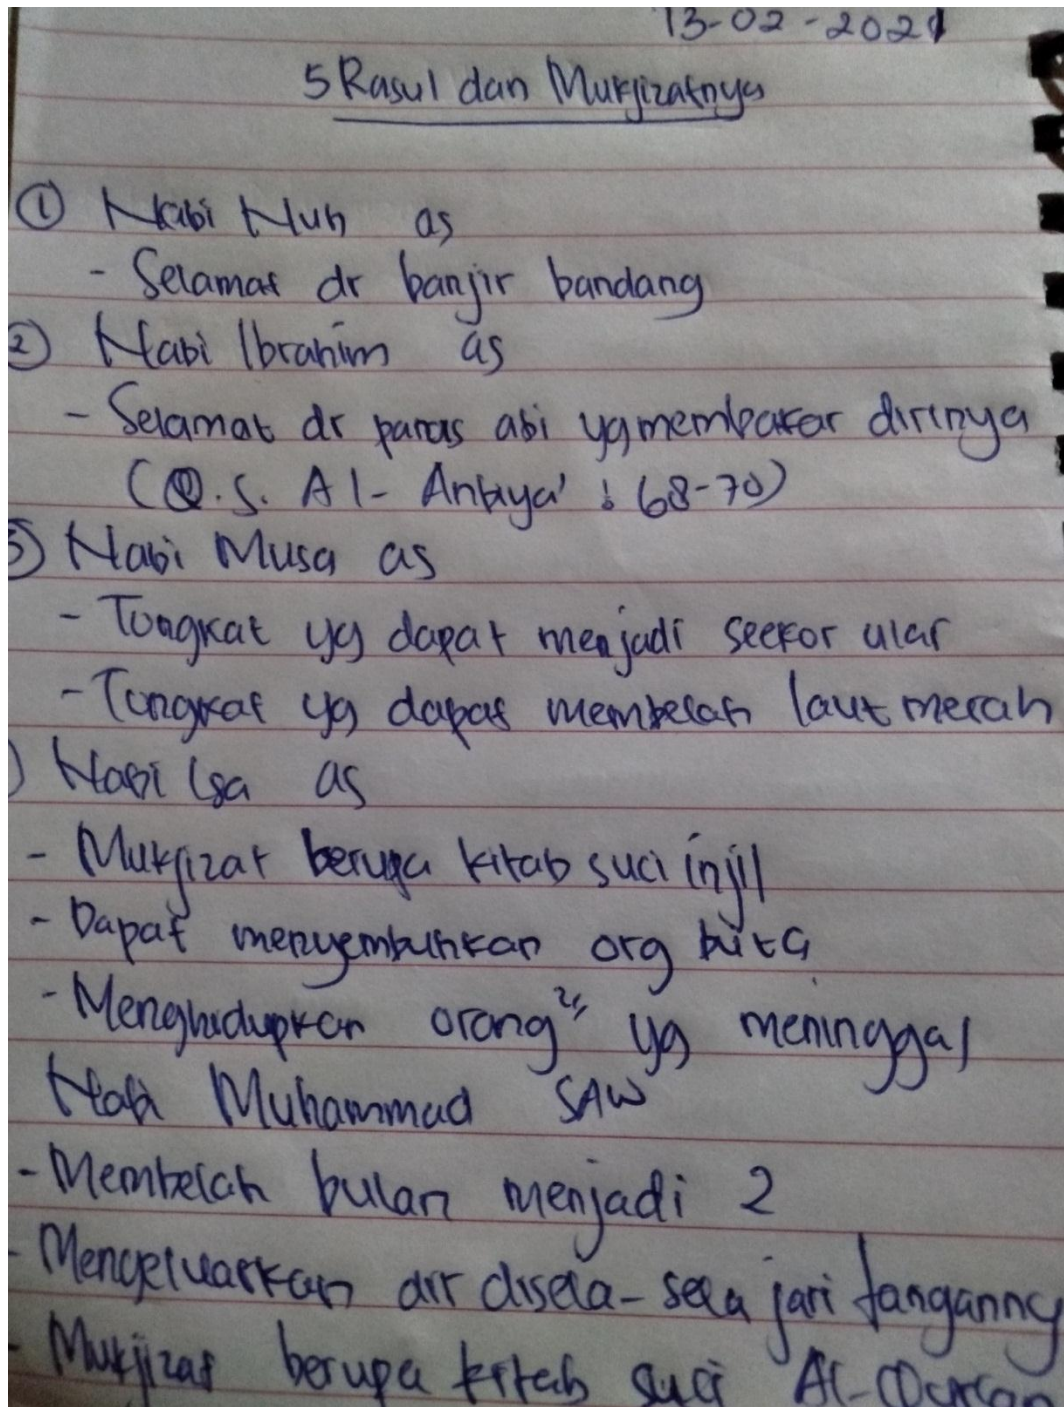 13-02-2021
5 Rasul dan Mukjizatnya
① Nabi Nuh as
- Selamat dr banjir bandang
② Nabi Ibrahim as
- Selamat dr panas abi yg membakar dirinya
(Q.S. Al-Anbiya' : 68-70)
3) Nabi Musa as
- Tongkat yg dapat menjadi seekor ular
- Tongkat yg dapat membelah laut merah
) Nabi Isa as
- Mukjizat berupa kitab suci injil
- Dapat menyembuhkan org buta
- Menghidupkan orang" yg meninggal
Nabi Muhammad SAW
- Membelah bulan menjadi 2
- Mengeluarkan air disela-sela jari tangannya
- Mukjizat berupa kitab suci Al-Quran